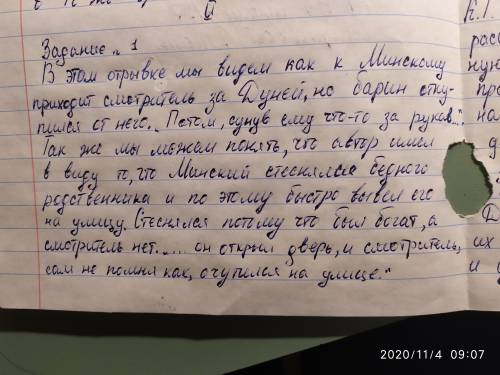 II
Задание n 1
В этом отрывке мы видем как к Минскому
приходит смотритель за Дуней, но барин отку-
пился от него. „Потом, сунув ему что-то за рукав..."
Так же мы можем понять, что автор имел
в виду то, что Минский стеснялся бедного
родственника и по этому быстро вывел его
на улицу. Стеснялся потому что был богат, а
смотритель нет. „... он открыл дверь, и смотритель,
сам не помня как, очутился на улице."
расс
ную
пр
на
д
Д
их
и
2020/11/4 09:07